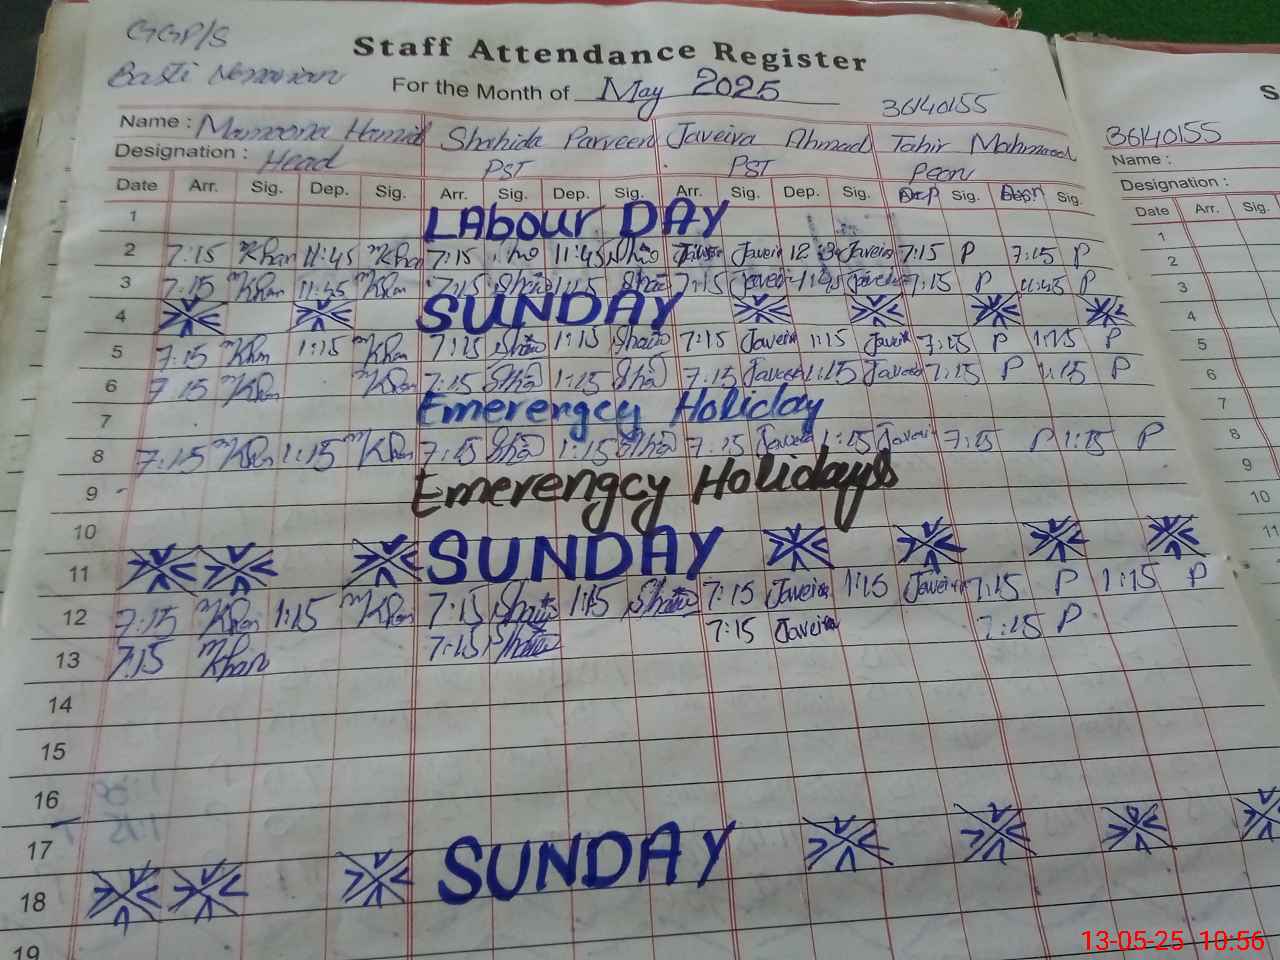 GGP/S
Staff Attendance Register
Basti
For the Month of May 2025
36140155
Name : Mamoona Hamid Shahida Parveen Javeira Ahmad Tahir Mahmood
Designation : Head PST PST Peon
Date Arr. Sig. Dep. Sig. Arr. Sig. Dep. Sig. Arr. Sig. Dep. Sig. Sig. Sig.
1 LABour DAY
2 7:15 Khan 11:45 Khan 7:15 11:45 Javeir 7:15 P 7:15 P
3 7:15 Khan 11:45 Khan 7:15 7:15 7:15 P 11:45 P
4 SUNDAY
5 7:15 Khan 1:15 Khan 7:15 1:15 7:15 Javeir 1:15 Javeir 7:15 P 1:15 P
6 7:15 Khan Khan 7:15 1:15 7:15 Javeir 1:15 Javeir 7:15 P 1:15 P
7 Emerengcy Holiday
8 7:15 Khan 1:15 Khan 7:15 1:15 7:15 Javeir 1:15 Javeir 7:15 P 1:15 P
9 Emerengcy Holidays
10
11 SUNDAY
12 7:15 Khan 1:15 Khan 7:15 1:15 7:15 Javeira 1:15 Javeira 7:15 P 1:15 P
13 7:15 Khan 7:15 7:15 Javeira 7:15 P
14
15
16
17
18 SUNDAY
19
S
36140155
Name :
Designation :
Date Arr. Sig.
1
2
3
4
5
6
7
8
9
10
11
13-05-25 10:56